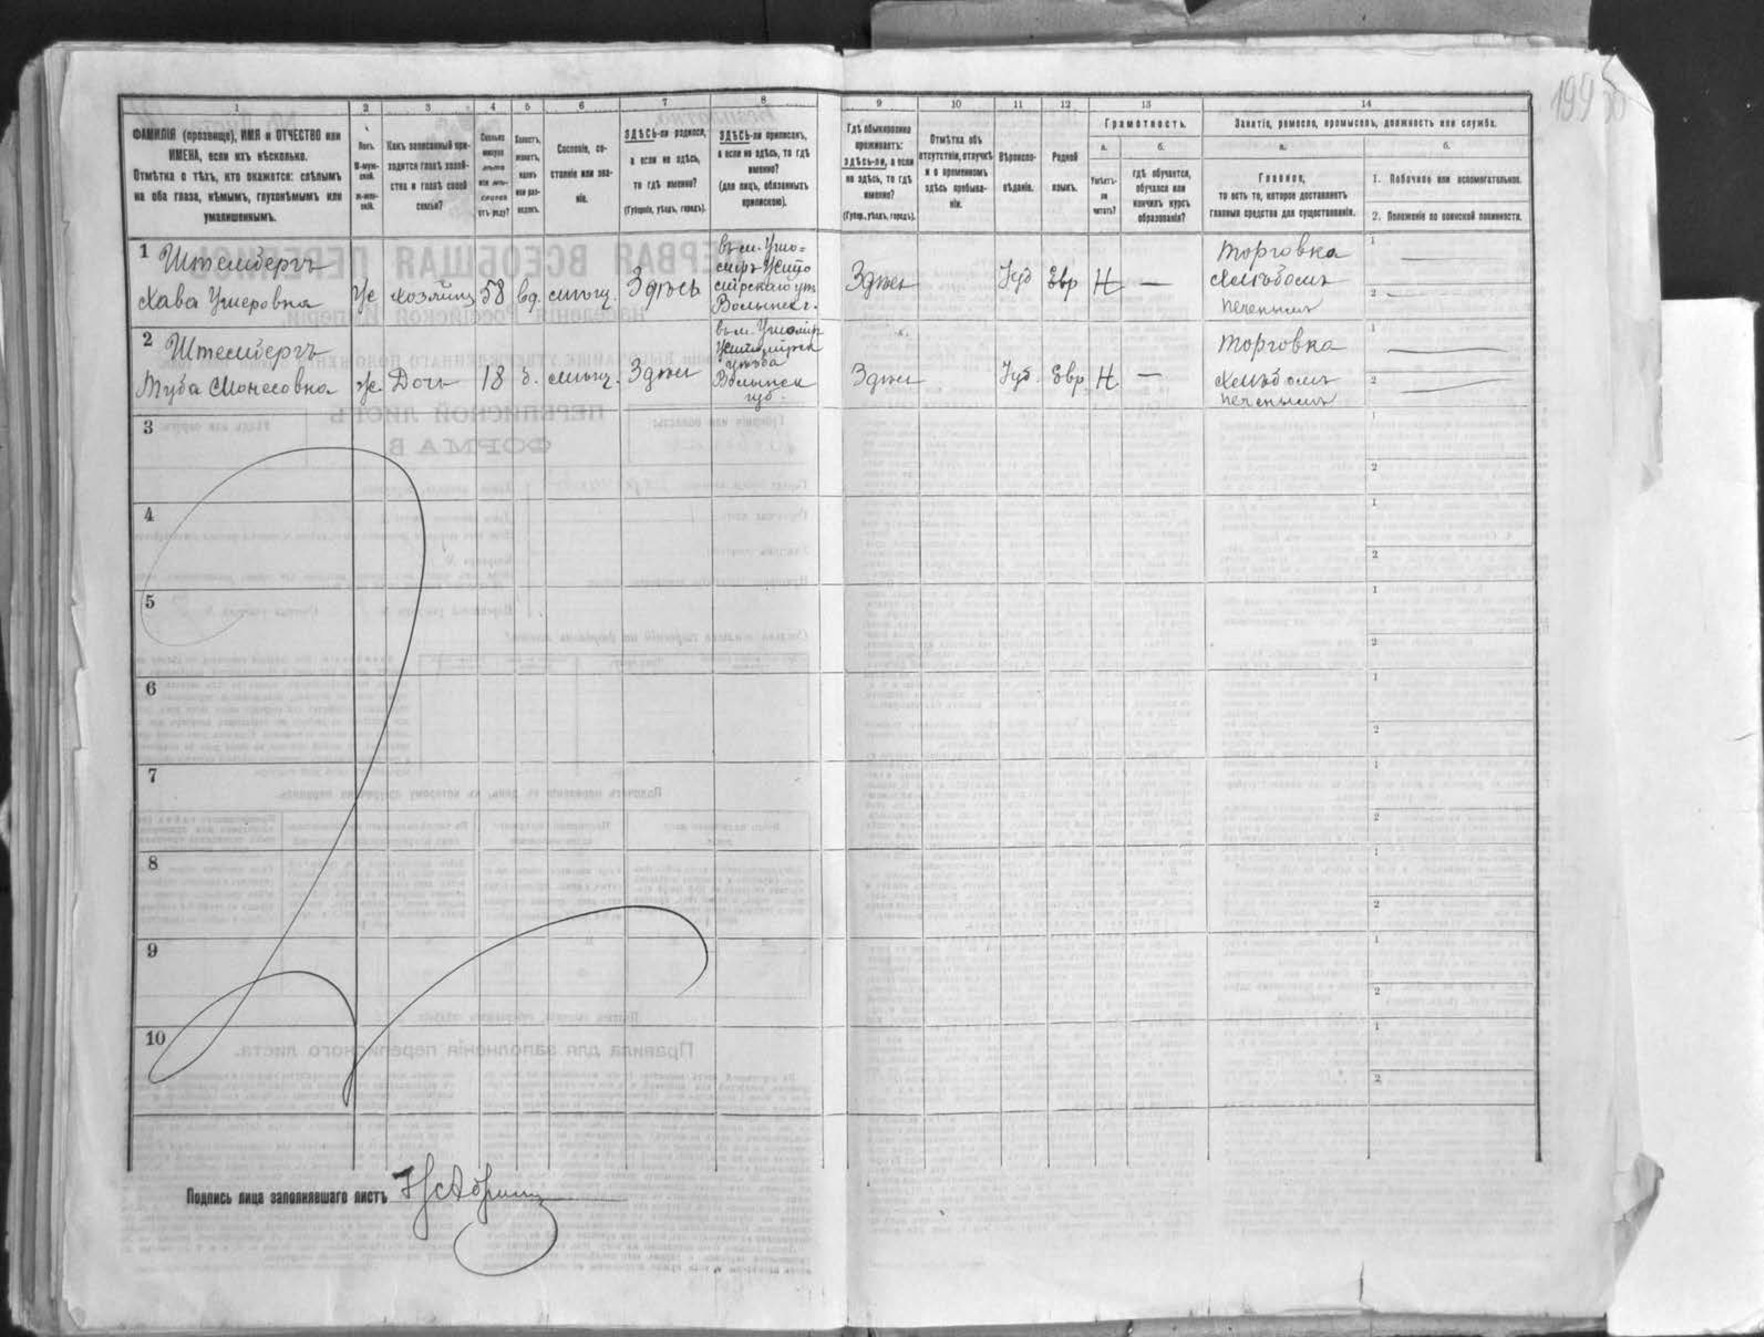 199
1
2
3
4
5
6
7
8
9
10
11
12
13
14
ФАМИЛІЯ (прозвище), ИМЯ и ОТЧЕСТВО или
ИМЕНА, если ихъ нѣсколько.
Отмѣтка о тѣхъ, кто окажется: слѣпымъ
на оба глаза, нѣмымъ, глухонѣмымъ или
умалишеннымъ.
Полъ.
М-муж-
ской.
Ж-жен-
скій.
Какъ записанный при-
ходится главѣ хозяй-
ства и главѣ своей
семьи?
Сколько
минуло
лѣтъ
или мѣ-
сяцевъ
отъ роду?
Холостъ,
женатъ,
вдовъ
или раз-
веденъ.
Сословіе, со-
стояніе или зва-
ніе.
ЗДѢСЬ-ли родился,
а если не здѣсь,
то гдѣ именно?
(Губернія, уѣздъ, городъ).
ЗДѢСЬ-ли приписанъ,
а если не здѣсь, то гдѣ
именно?
(для лицъ, обязанныхъ
припискою).
Гдѣ обыкновенно
проживаетъ:
здѣсь-ли, а если
не здѣсь, то гдѣ
именно?
(Губер., уѣздъ, городъ).
Отмѣтка объ
отсутствіи, отлучкѣ
и о временномъ
здѣсь пребыва-
ніи.
Вѣроиспо-
вѣданіе.
Родной
языкъ.
Грамотность.
а.
Умѣетъ-
ли
читать?
б.
гдѣ обучается,
обучался или
кончилъ курсъ
образованія?
Занятіе, ремесло, промыселъ, должность или служба.
а.
Главное,
то есть то, которое доставляетъ
главныя средства для существованія.
б.
1. Побочное или вспомогательное.
2. Положеніе по воинской повинности.
1 Штембергъ
Хава Ушеровна
Ж
хозяйка
58
вд.
мѣщ.
Здѣсь
въ м. Ушо=
миръ Жито
мірскаго у
Волынск г.
Здѣсь
Іуд
Евр
Н
—
Торговка
хлѣбомъ
печенымъ
1
2
2 Штембергъ
Туба Мошковна
Ж.
Дочь
18
д.
мѣщ.
Здѣсь
въ м. Ушомир
Житомірск
уѣзда
Волынск
губ.
Здѣсь
Іуд.
Евр
Н.
—
Торговка
хлѣбомъ
печенымъ
1
2
3
1
2
4
1
2
5
1
2
6
1
2
7
1
2
8
1
2
9
1
2
10
1
2
Подпись лица заполнявшаго листъ